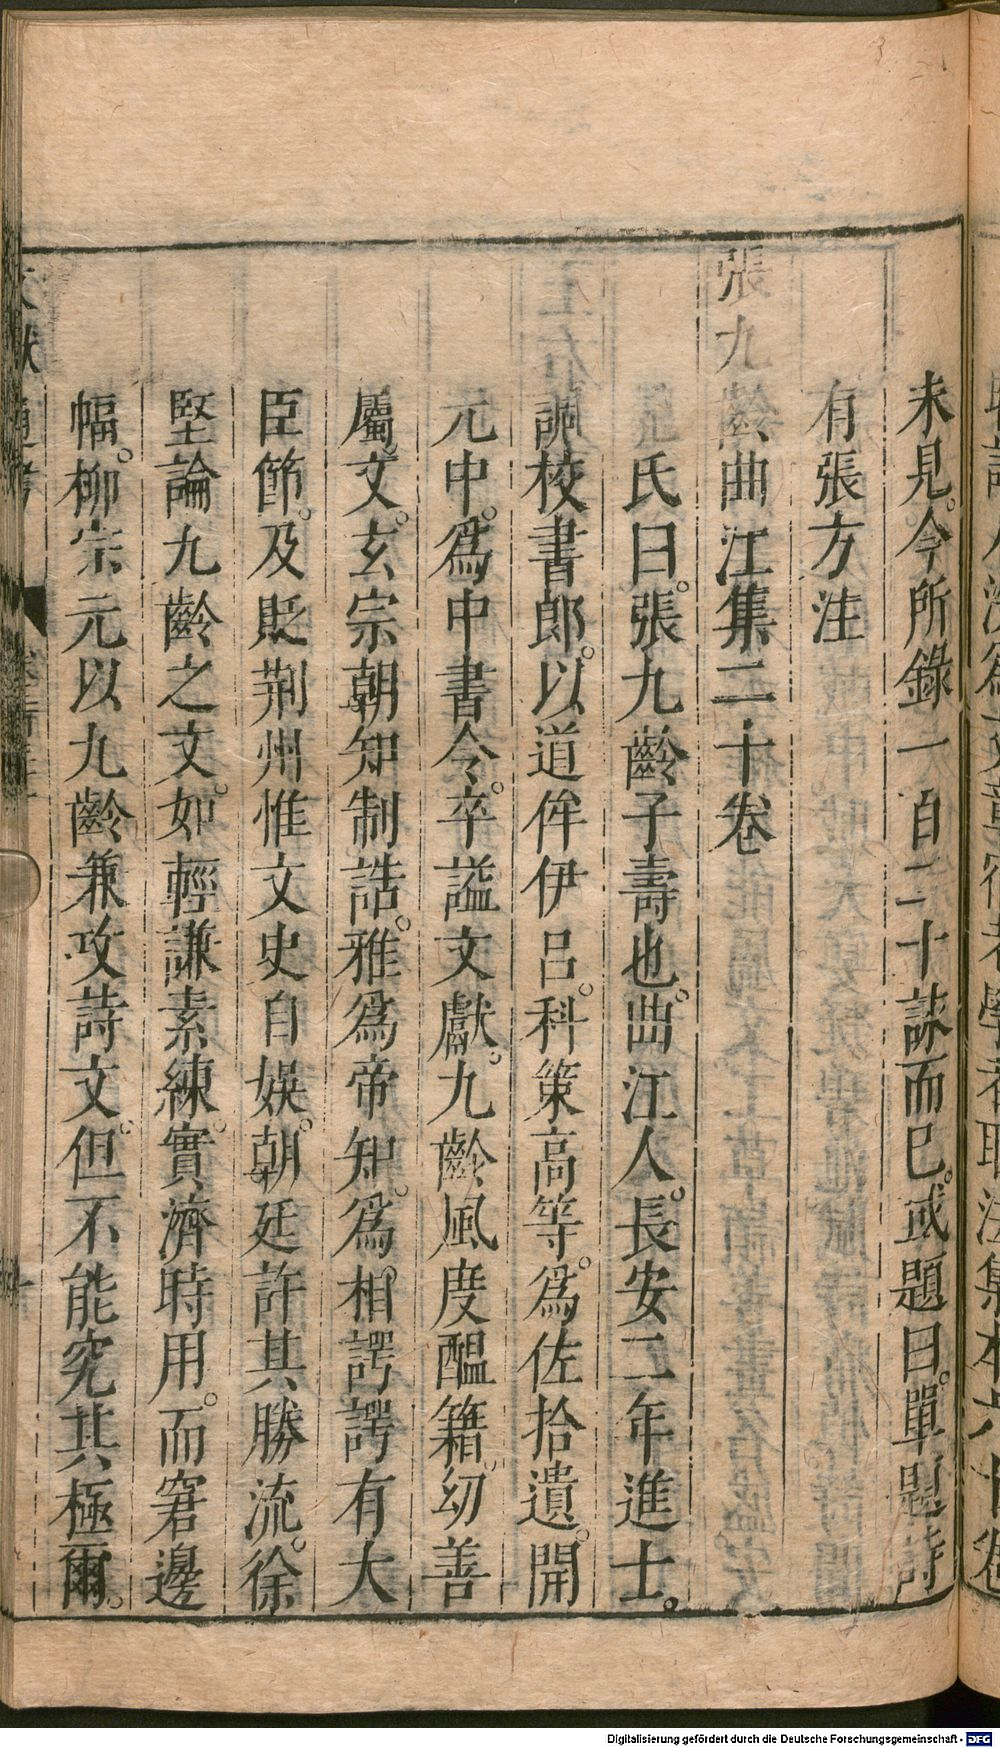 未見。今所錄一百二十詠而巳。或題曰。單題詩
有張方洼
張九齡曲江集二十卷
晁氏曰。張九齡子壽也。曲江人。長安二年進士。
調校書郎。以道侔伊呂。科策高等。爲佐拾遺。開
元中。爲中書令。卒謚文獻。九齡風度醞籍。幼善
屬文。玄宗朝知制誥。雅爲帝知。爲相諤諤有大
臣節。及貶荆州惟文史自娛。朝廷許其勝流。徐
堅論九齡之文。如輕謙素練。實濟時用。而窘邊
幅。柳宗元以九齡兼攻詩文。但不能究其極爾。
Digitalisierung gefördert durch die Deutsche Forschungsgemeinschaft - DFG